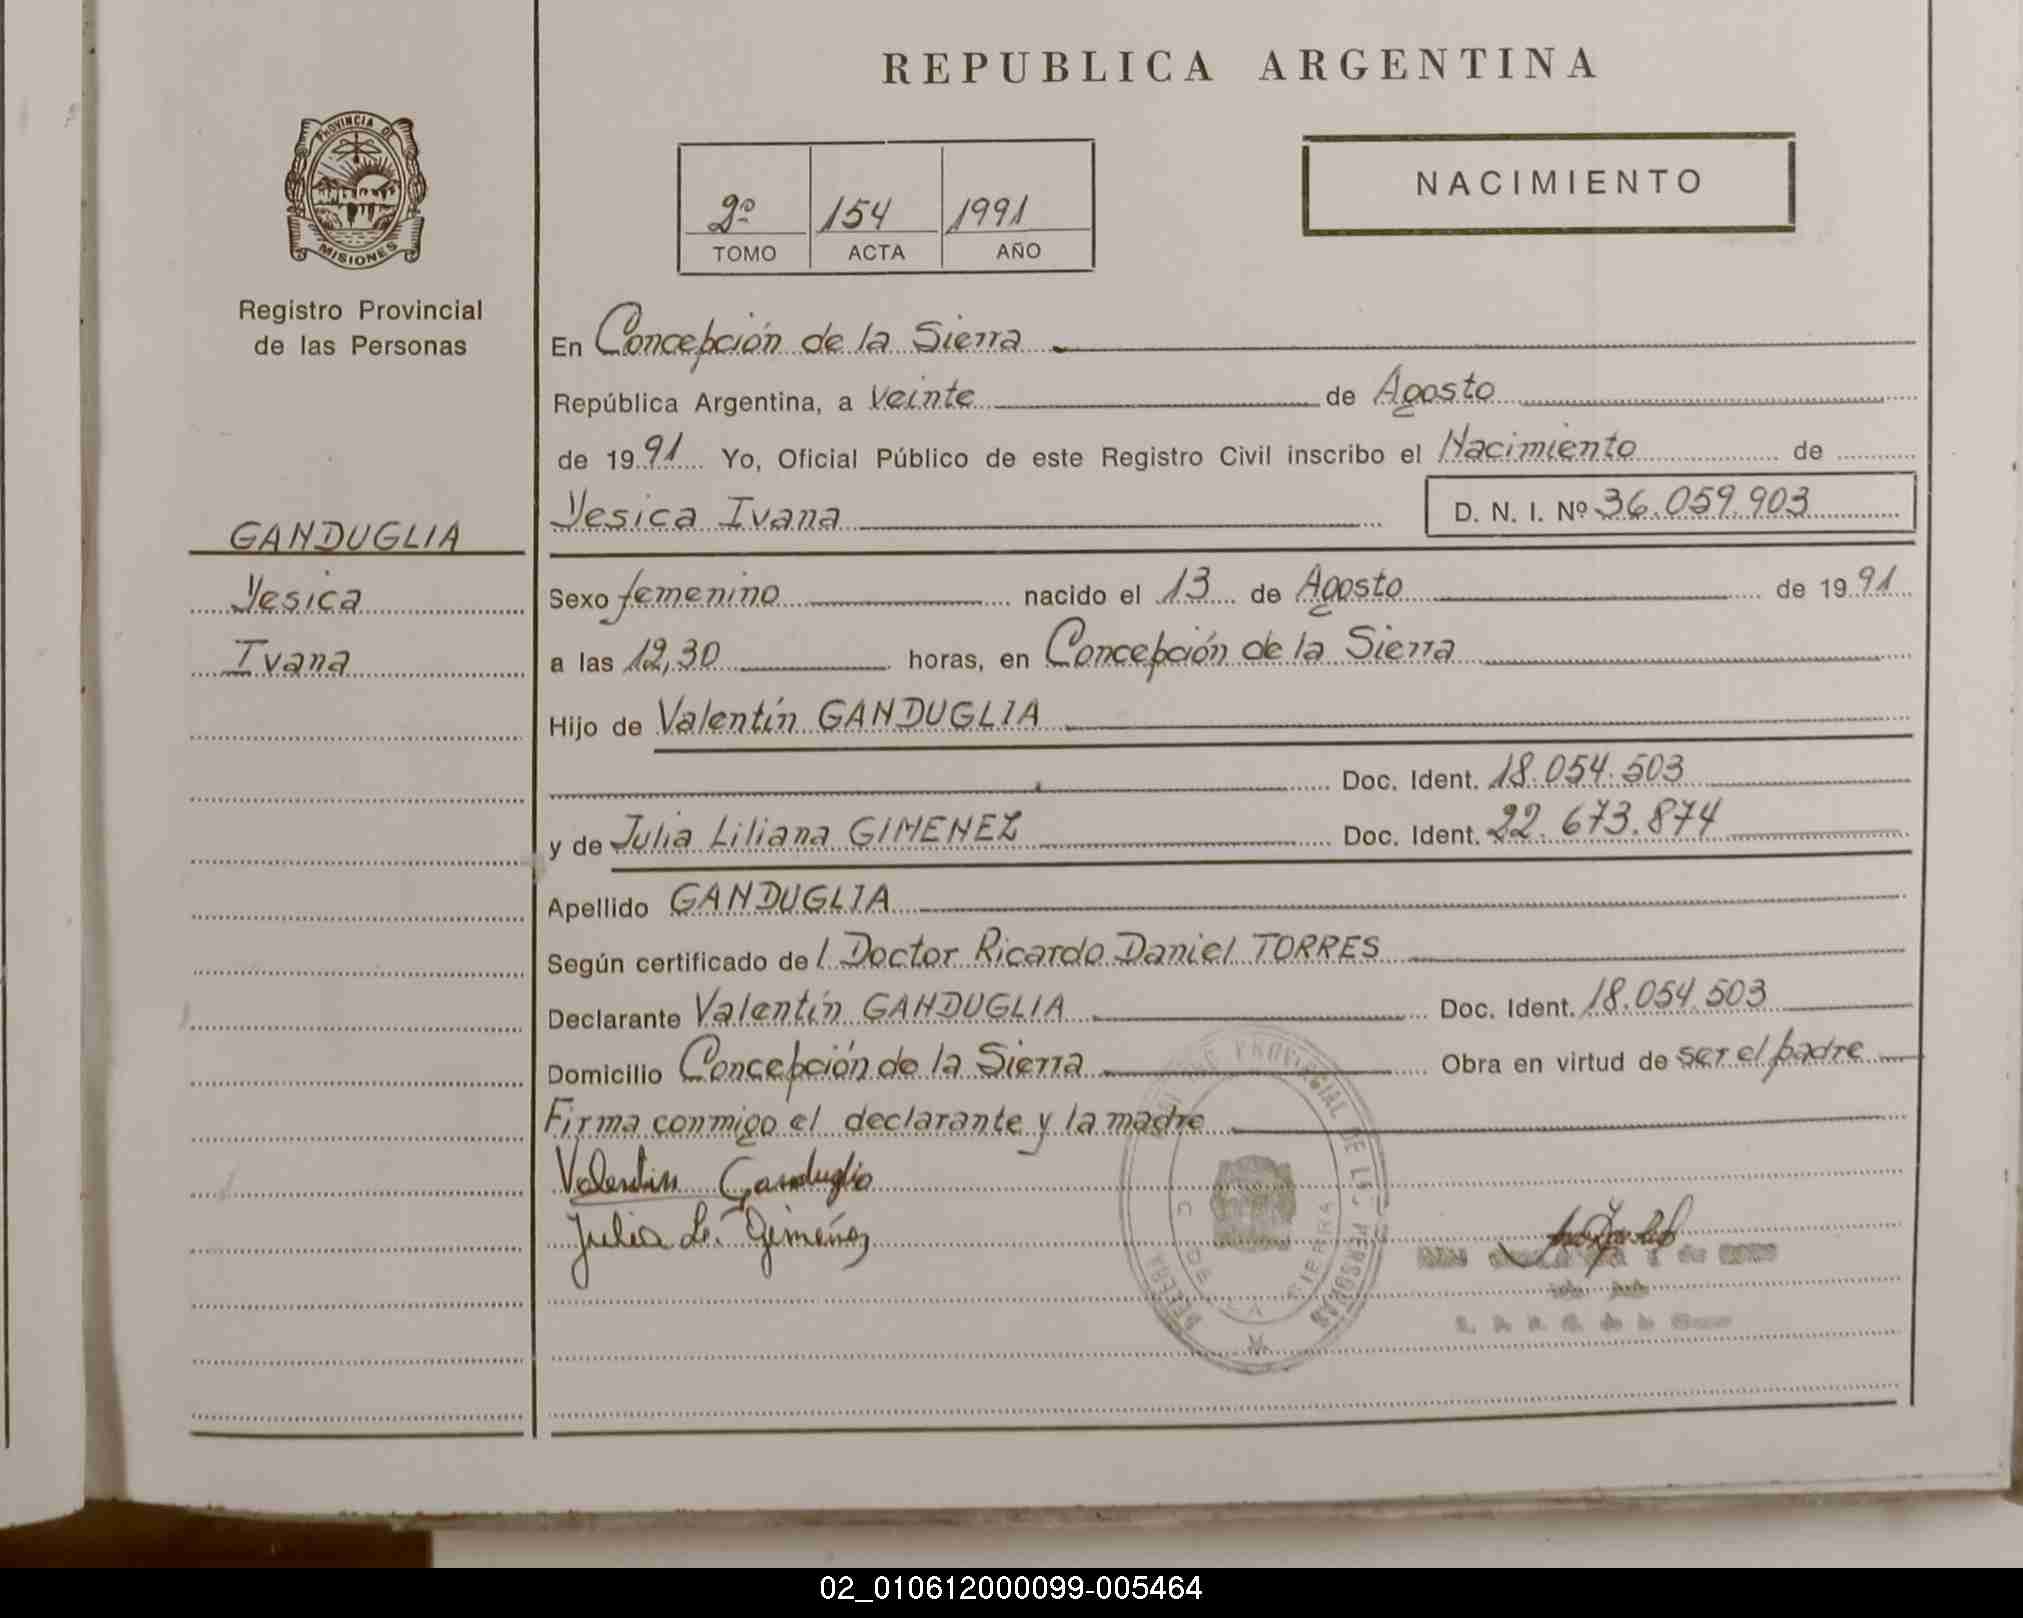 REPUBLICA ARGENTINA
PROVINCIA DE
MISIONES
Registro Provincial
de las Personas
2º 154 1991
TOMO ACTA AÑO
NACIMIENTO
GANDUGLIA
Yesica
Ivana
En Concepción de la Sierra
República Argentina, a veinte de Agosto
de 1991 Yo, Oficial Público de este Registro Civil inscribo el Nacimiento de
Yesica Ivana D. N. I. Nº 36.059.903
Sexo femenino nacido el 13 de Agosto de 1991
a las 12,30 horas, en Concepción de la Sierra
Hijo de Valentín GANDUGLIA
Doc. Ident. 18.054.503
y de Julia Liliana GIMENEZ Doc. Ident. 22.673.874
Apellido GANDUGLIA
Según certificado del Doctor Ricardo Daniel TORRES
Declarante Valentín GANDUGLIA Doc. Ident. 18.054.503
Domicilio Concepción de la Sierra Obra en virtud de ser el padre
Firma conmigo el declarante y la madre
Valentin Ganduglia
Julia L. Giménez
PROVINCIAL DE LAS PERSONAS
DE LA SIERRA
02_010612000099-005464